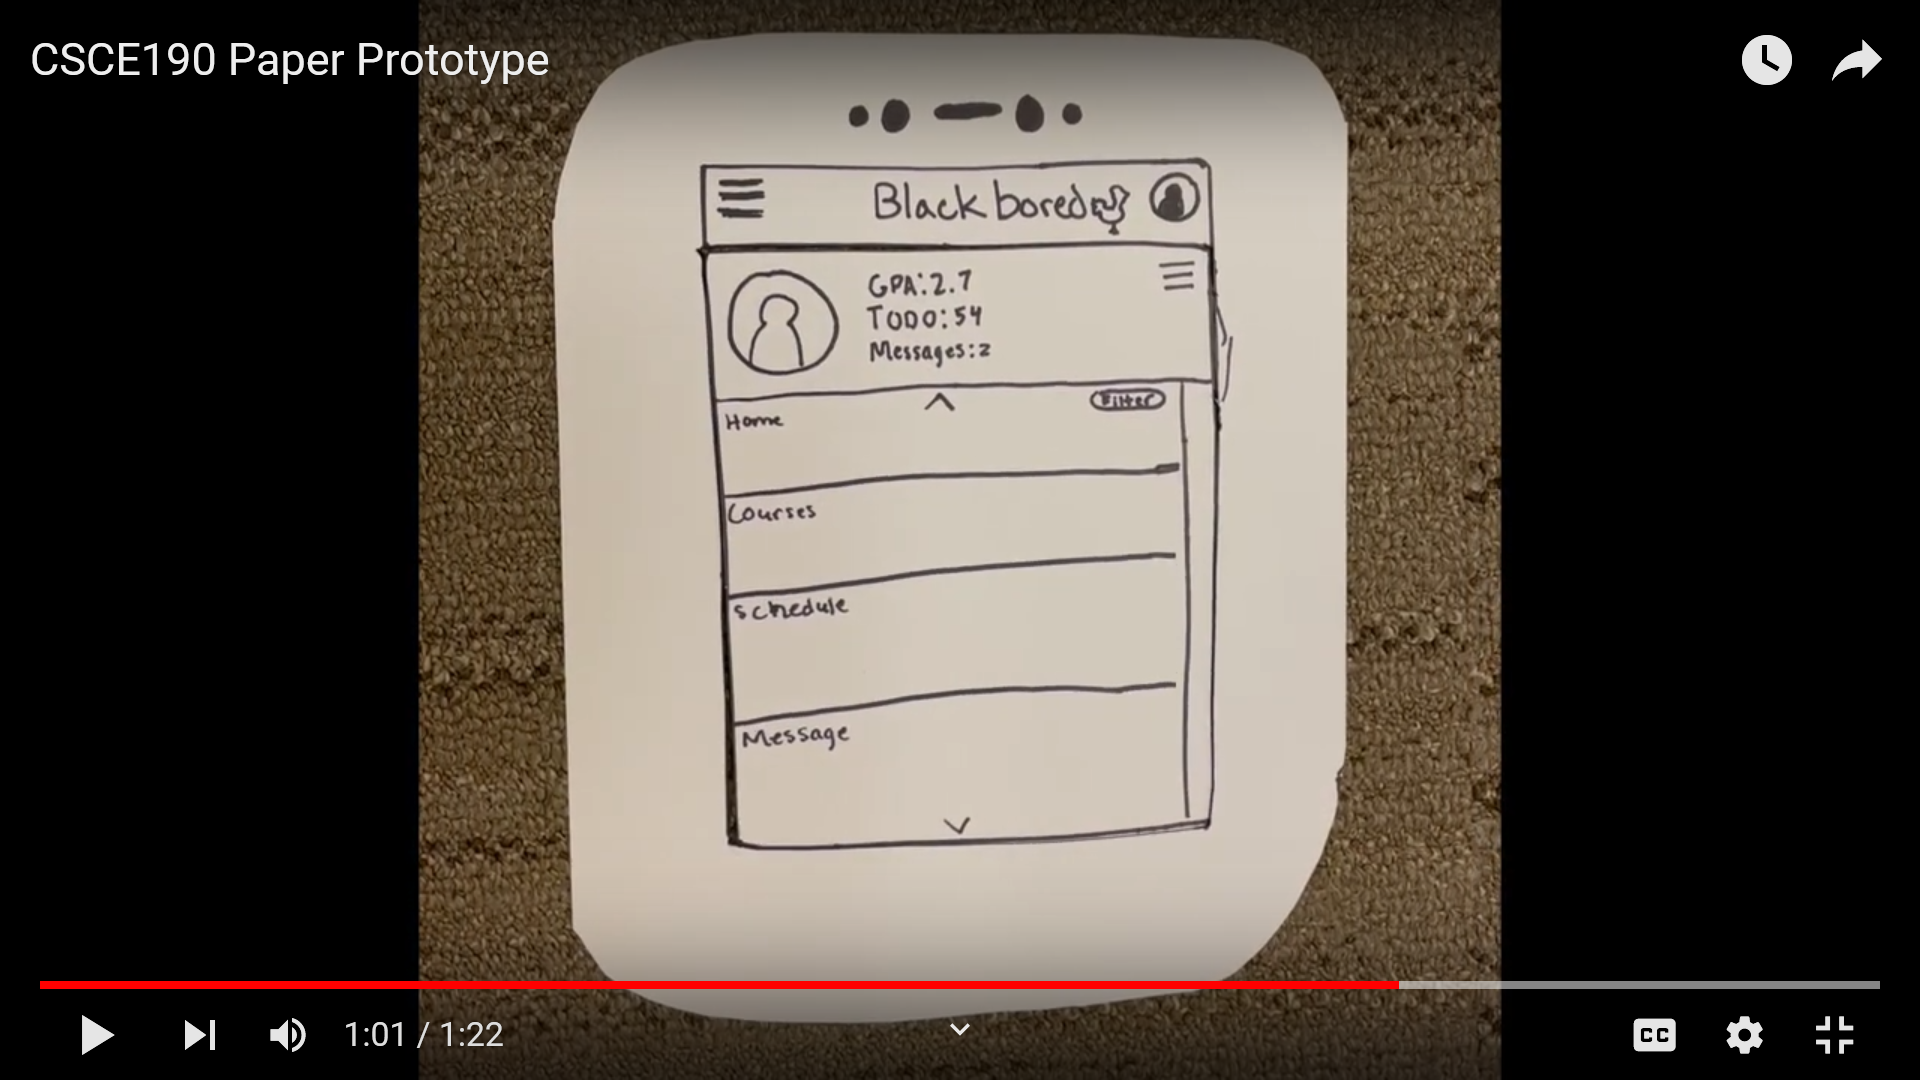 CSCE190 Paper Prototype
Blackbored
GPA:2.7
TODO:54
Messages:2
Filter
Home
Courses
Schedule
Message
1:01 / 1:22
CC